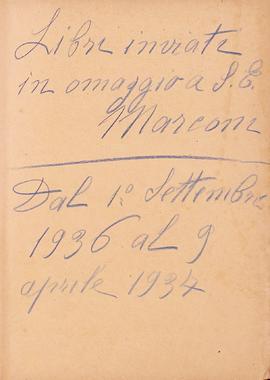 Libri inviati
in omaggio a S.E.
Marconi
Dal 1º Settembre
1936 al 9
aprile 1937